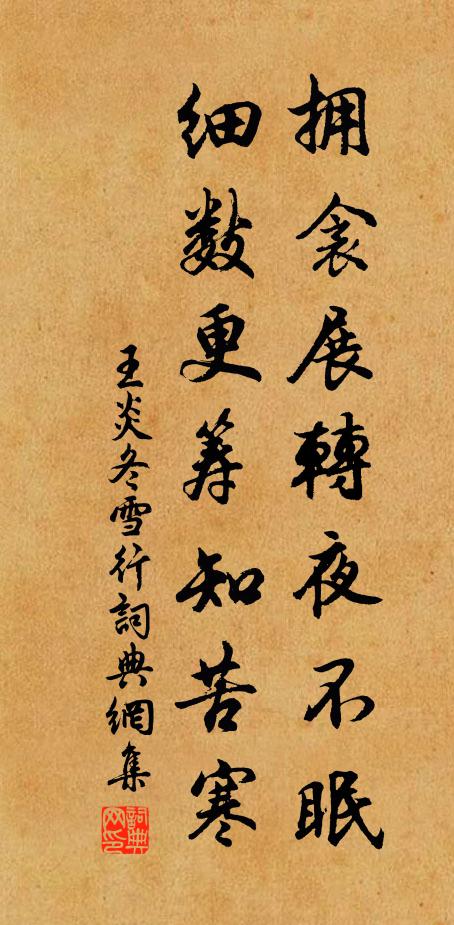 拥衾展轉夜不眠
细数更筹知苦寒
王炎冬雪行詞典網集
詞典网印